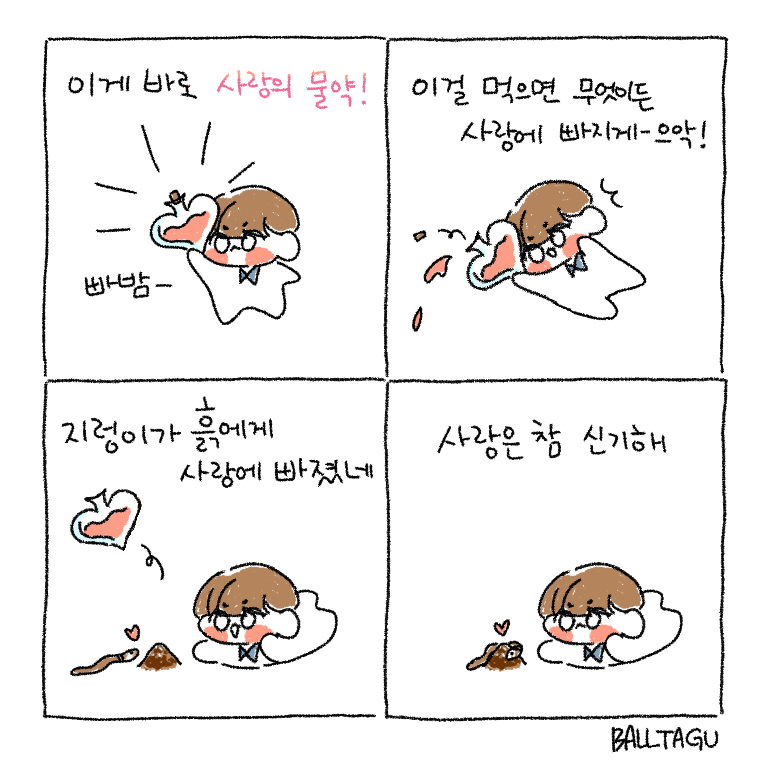 이게 바로 사랑의 물약!
빠밤-
이걸 먹으면 무엇이든
사랑에 빠지게-으악!
지렁이가 흙에게
사랑에 빠졌네
사랑은 참 신기해
BALLTAGU